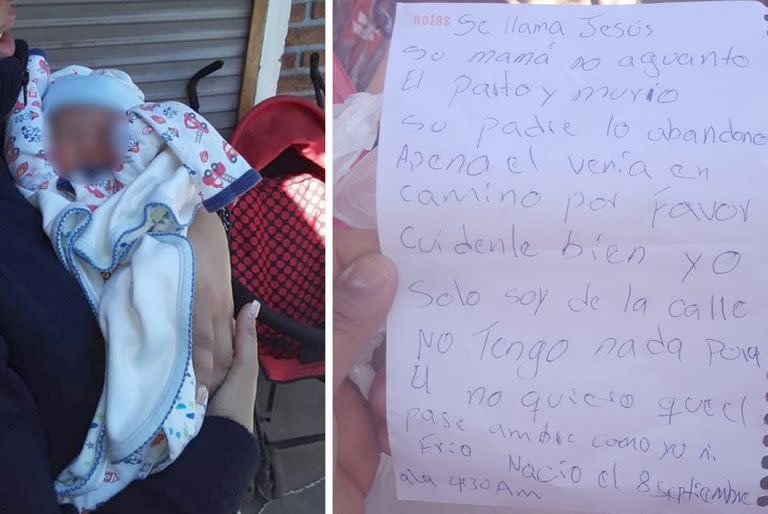 notas Se llama Jesús
Su mamá no aguanto
El parto y murio
Su padre lo abandono
Apena el venía en
camino por favor
Cuidenle bien yo
Solo soy de la calle
No Tengo nada para
El no quiero que el
pase ambre como yo ni
Frio Nacio el 8 septiembre
a la 4:30 Am